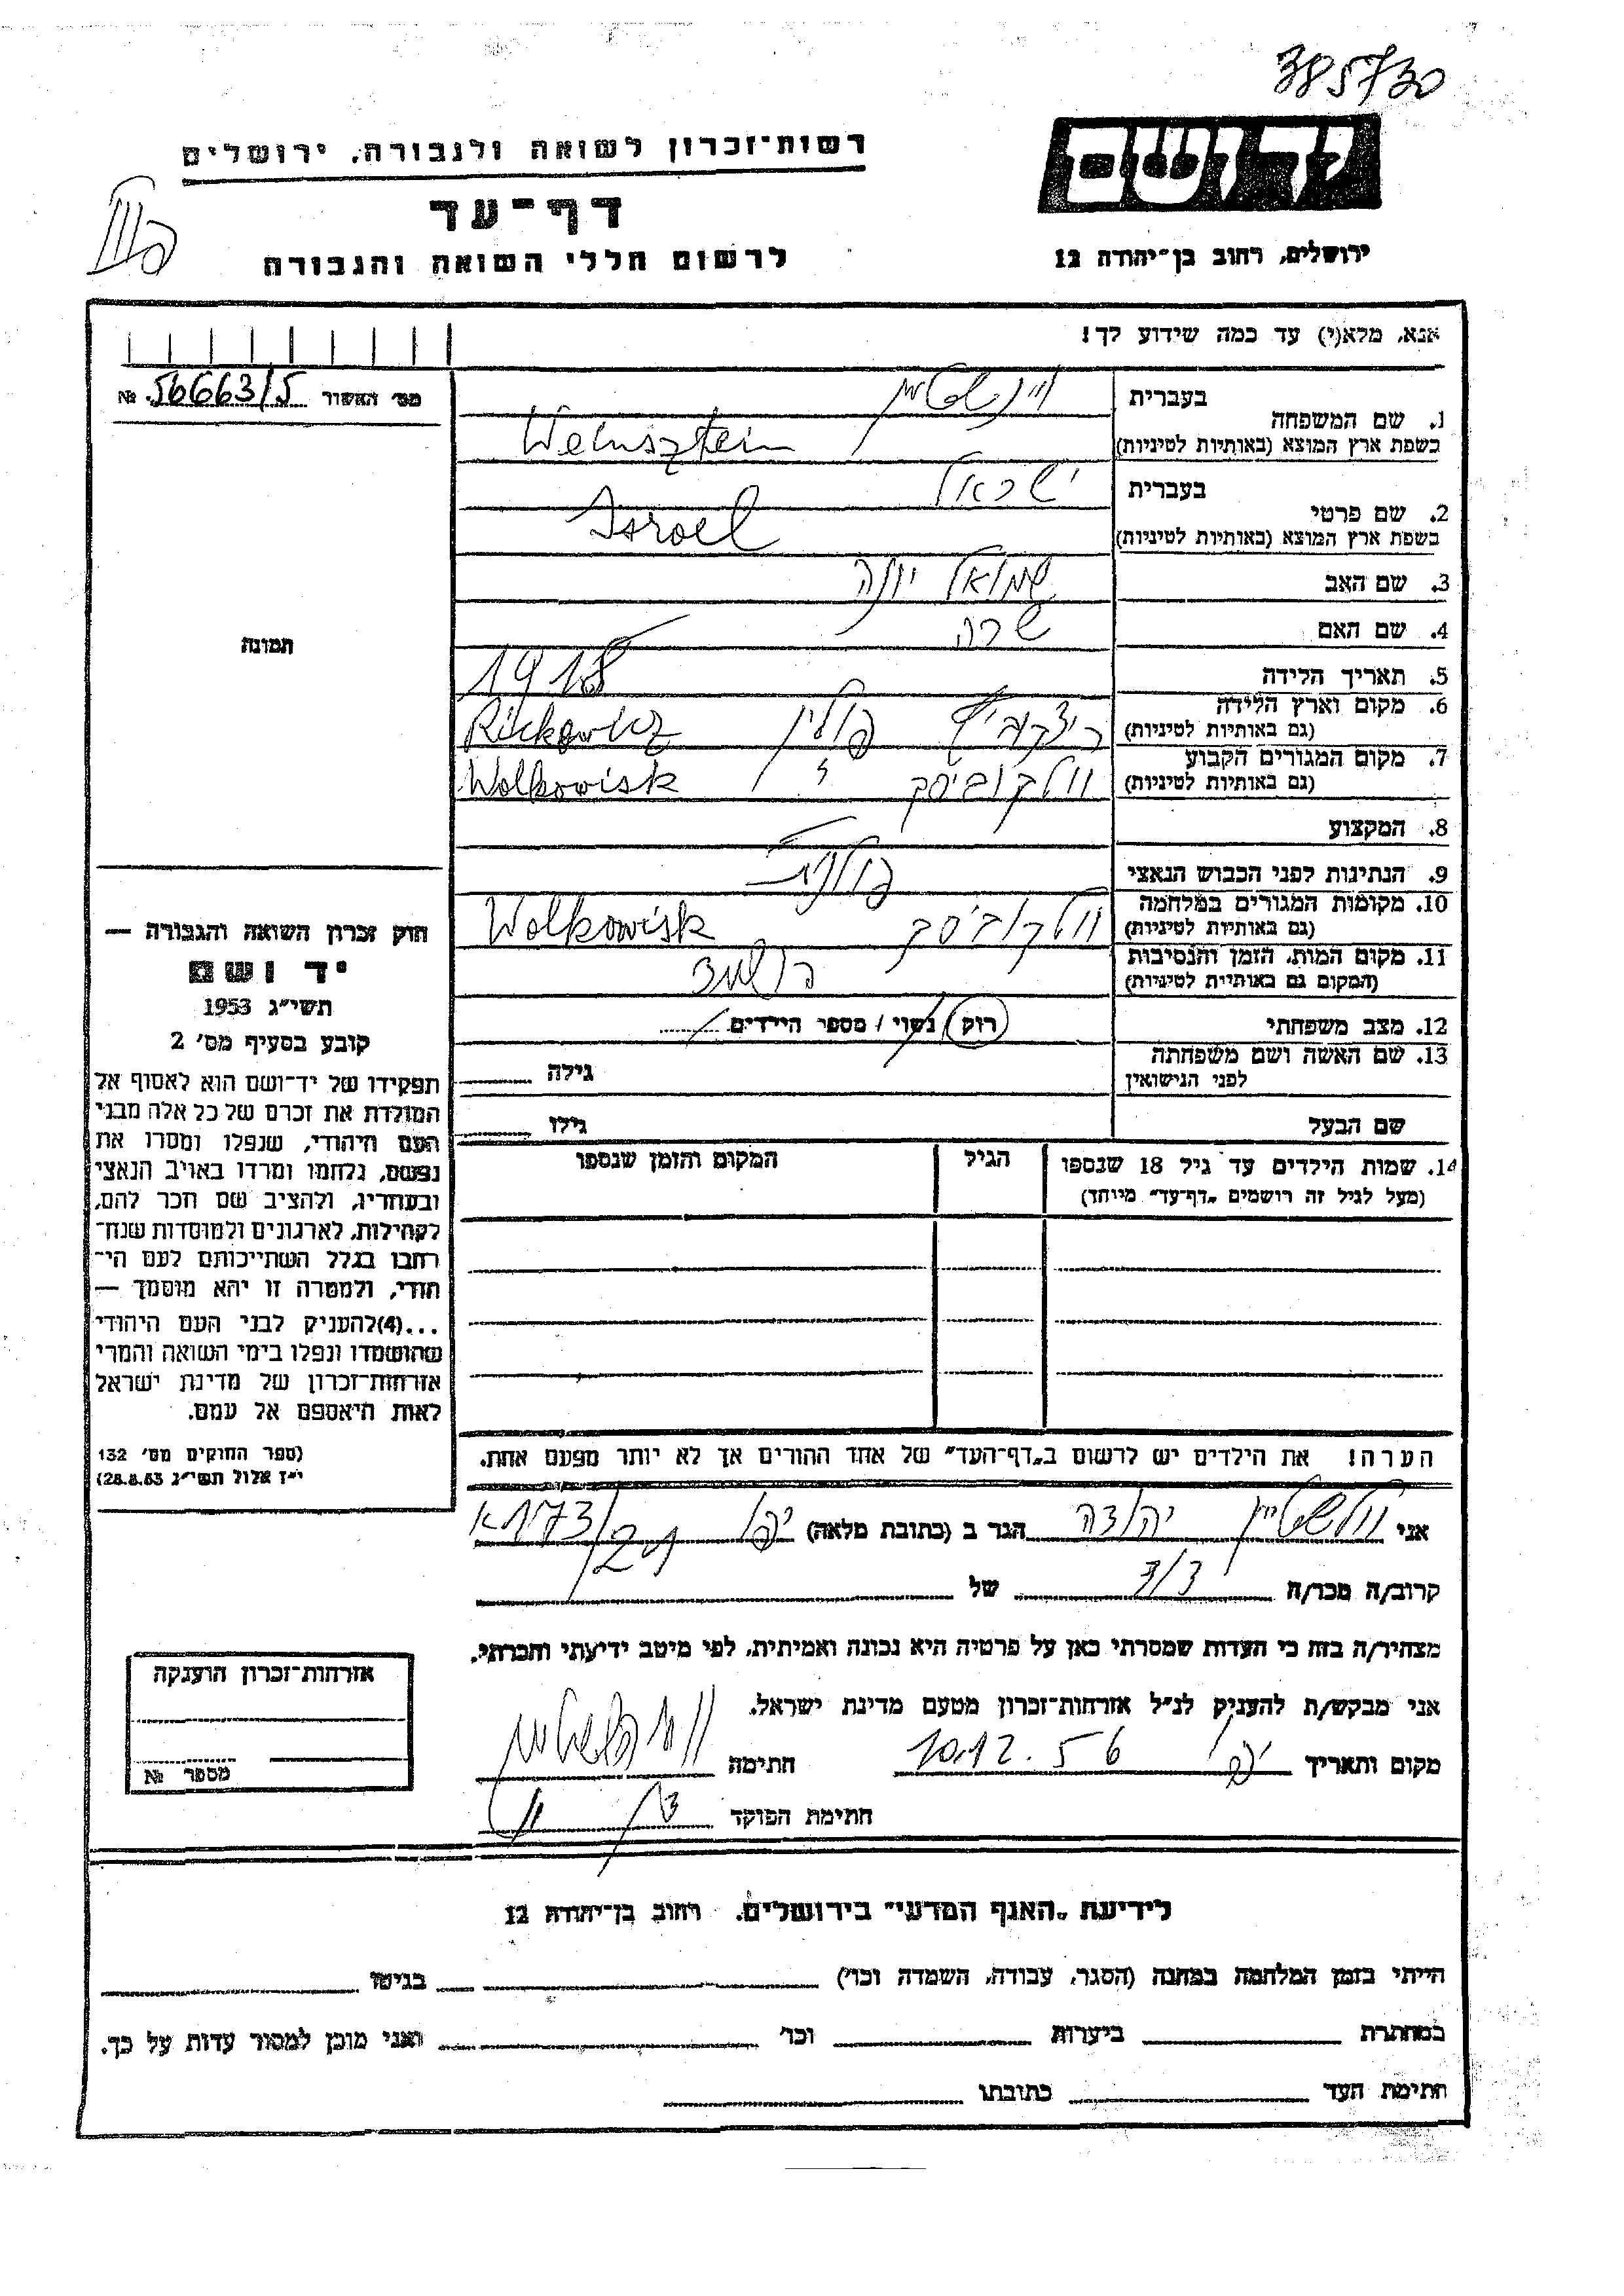 385730
יד ושם
רשות־זכרון לשואה ולגבורה, ירושלים
דף־עד
לרשום חללי השואה והגבורה
ירושלים, רחוב בן־יהודה 12
אנא, מלא(י) עד כמה שידוע לך!
מס׳ האשור 56663/5 №
תמונה
1. שם המשפחה בעברית ויינשטיין
בשפת ארץ המוצא (באותיות לטיניות) Weinsztein
2. שם פרטי בעברית ישראל
בשפת ארץ המוצא (באותיות לטיניות) Isroel
3. שם האב שמואל יונה
4. שם האם שרה
5. תאריך הלידה 1918
6. מקום וארץ הלידה
(גם באותיות לטיניות) פולין
7. מקום המגורים הקבוע
(גם באותיות לטיניות) וולקוביסק Wolkowisk
8. המקצוע
9. הנתינות לפני הכבוש הנאצי פולנית
10. מקומות המגורים במלחמה
(גם באותיות לטיניות) וולקוביסק Wolkowisk
11. מקום המות, הזמן והנסיבות
(המקום גם באותיות לטיניות)
12. מצב משפחתי רווק / נשוי / מספר הילדים
13. שם האשה ושם משפחתה
לפני הנישואין גילה
שם הבעל גילו
14. שמות הילדים עד גיל 18 שנספו הגיל המקום והזמן שנספו
(מעל לגיל זה רושמים „דף־עד״ מיוחד)
חוק זכרון השואה והגבורה —
יד ושם
תשי״ג 1953
קובע בסעיף מס׳ 2
תפקידו של יד־ושם הוא לאסוף אל
המולדת את זכרם של כל אלה מבני
העם היהודי, שנפלו ומסרו את
נפשם, נלחמו ומרדו באויב הנאצי
ובעוזריו, ולהציב שם וזכר להם,
לקהילות, לארגונים ולמוסדות שנח־
רבו בגלל השתייכותם לעם הי־
הודי, ולמטרה זו יהא מוסמך —
...(4) להעניק לבני העם היהודי
שהושמדו ונפלו בימי השואה והמרי
אזרחות־זכרון של מדינת ישראל
לאות היאספם אל עמם.
(ספר החוקים מס׳ 132
י״ז אלול תשי״ג 28.8.53)
הערה! את הילדים יש לרשום ב„דף־העד״ של אחד ההורים אך לא יותר מפעם אחת.
אני יהודה הגר ב (כתובת מלאה) יפו
קרוב/ה מכר/ה של
מצהיר/ה בזה כי העדות שמסרתי כאן על פרטיה היא נכונה ואמיתית, לפי מיטב ידיעתי והכרתי.
אני מבקש/ת להעניק לנ״ל אזרחות־זכרון מטעם מדינת ישראל.
מקום ותאריך יפו 10.12.56 חתימה
חתימת הפוקד
אזרחות־זכרון הוענקה
מספר №
לידיעת „האגף המדעי״ בירושלים, רחוב בן־יהודה 12
הייתי בזמן המלחמה במחנה (הסגר, עבודה, השמדה וכו׳) בגיטו
במחתרת ביערות וכו׳ ואני מוכן למסור עדות על כך.
חתימת העד כתובתו